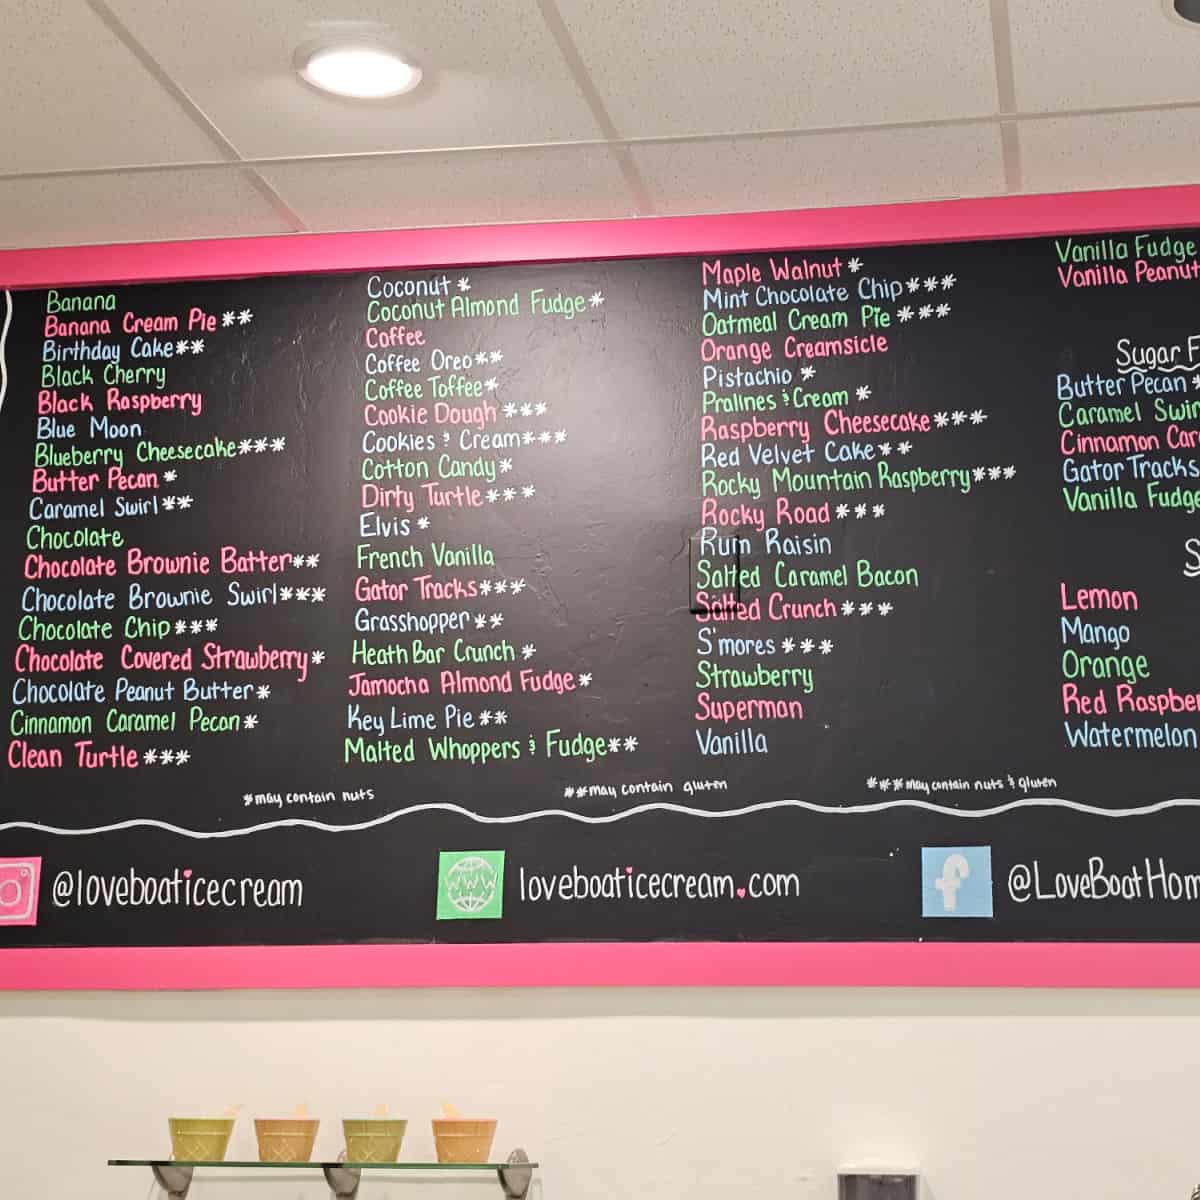 Banana
Banana Cream Pie**
Birthday Cake**
Black Cherry
Black Raspberry
Blue Moon
Blueberry Cheesecake***
Butter Pecan *
Caramel Swirl**
Chocolate
Chocolate Brownie Batter**
Chocolate Brownie Swirl***
Chocolate Chip***
Chocolate Covered Strawberry*
Chocolate Peanut Butter*
Cinnamon Caramel Pecan*
Clean Turtle***
Coconut *
Coconut Almond Fudge*
Coffee
Coffee Oreo**
Coffee Toffee*
Cookie Dough***
Cookies & Cream***
Cotton Candy*
Dirty Turtle***
Elvis *
French Vanilla
Gator Tracks***
Grasshopper**
Heath Bar Crunch *
Jamocha Almond Fudge*
Key Lime Pie**
Malted Whoppers & Fudge**
Maple Walnut*
Mint Chocolate Chip***
Oatmeal Cream Pie ***
Orange Creamsicle
Pistachio *
Pralines & Cream *
Raspberry Cheesecake***
Red Velvet Cake**
Rocky Mountain Raspberry***
Rocky Road***
Rum Raisin
Salted Caramel Bacon
Salted Crunch***
S'mores ***
Strawberry
Superman
Vanilla
Vanilla Fudge
Vanilla Peanut
Sugar F
Butter Pecan *
Caramel Swir
Cinnamon Car
Gator Tracks
Vanilla Fudge
S
Lemon
Mango
Orange
Red Raspber
Watermelon
*may contain nuts
**may contain gluten
***may contain nuts & gluten
@loveboaticecream
www
loveboaticecream.com
f
@LoveBoatHom